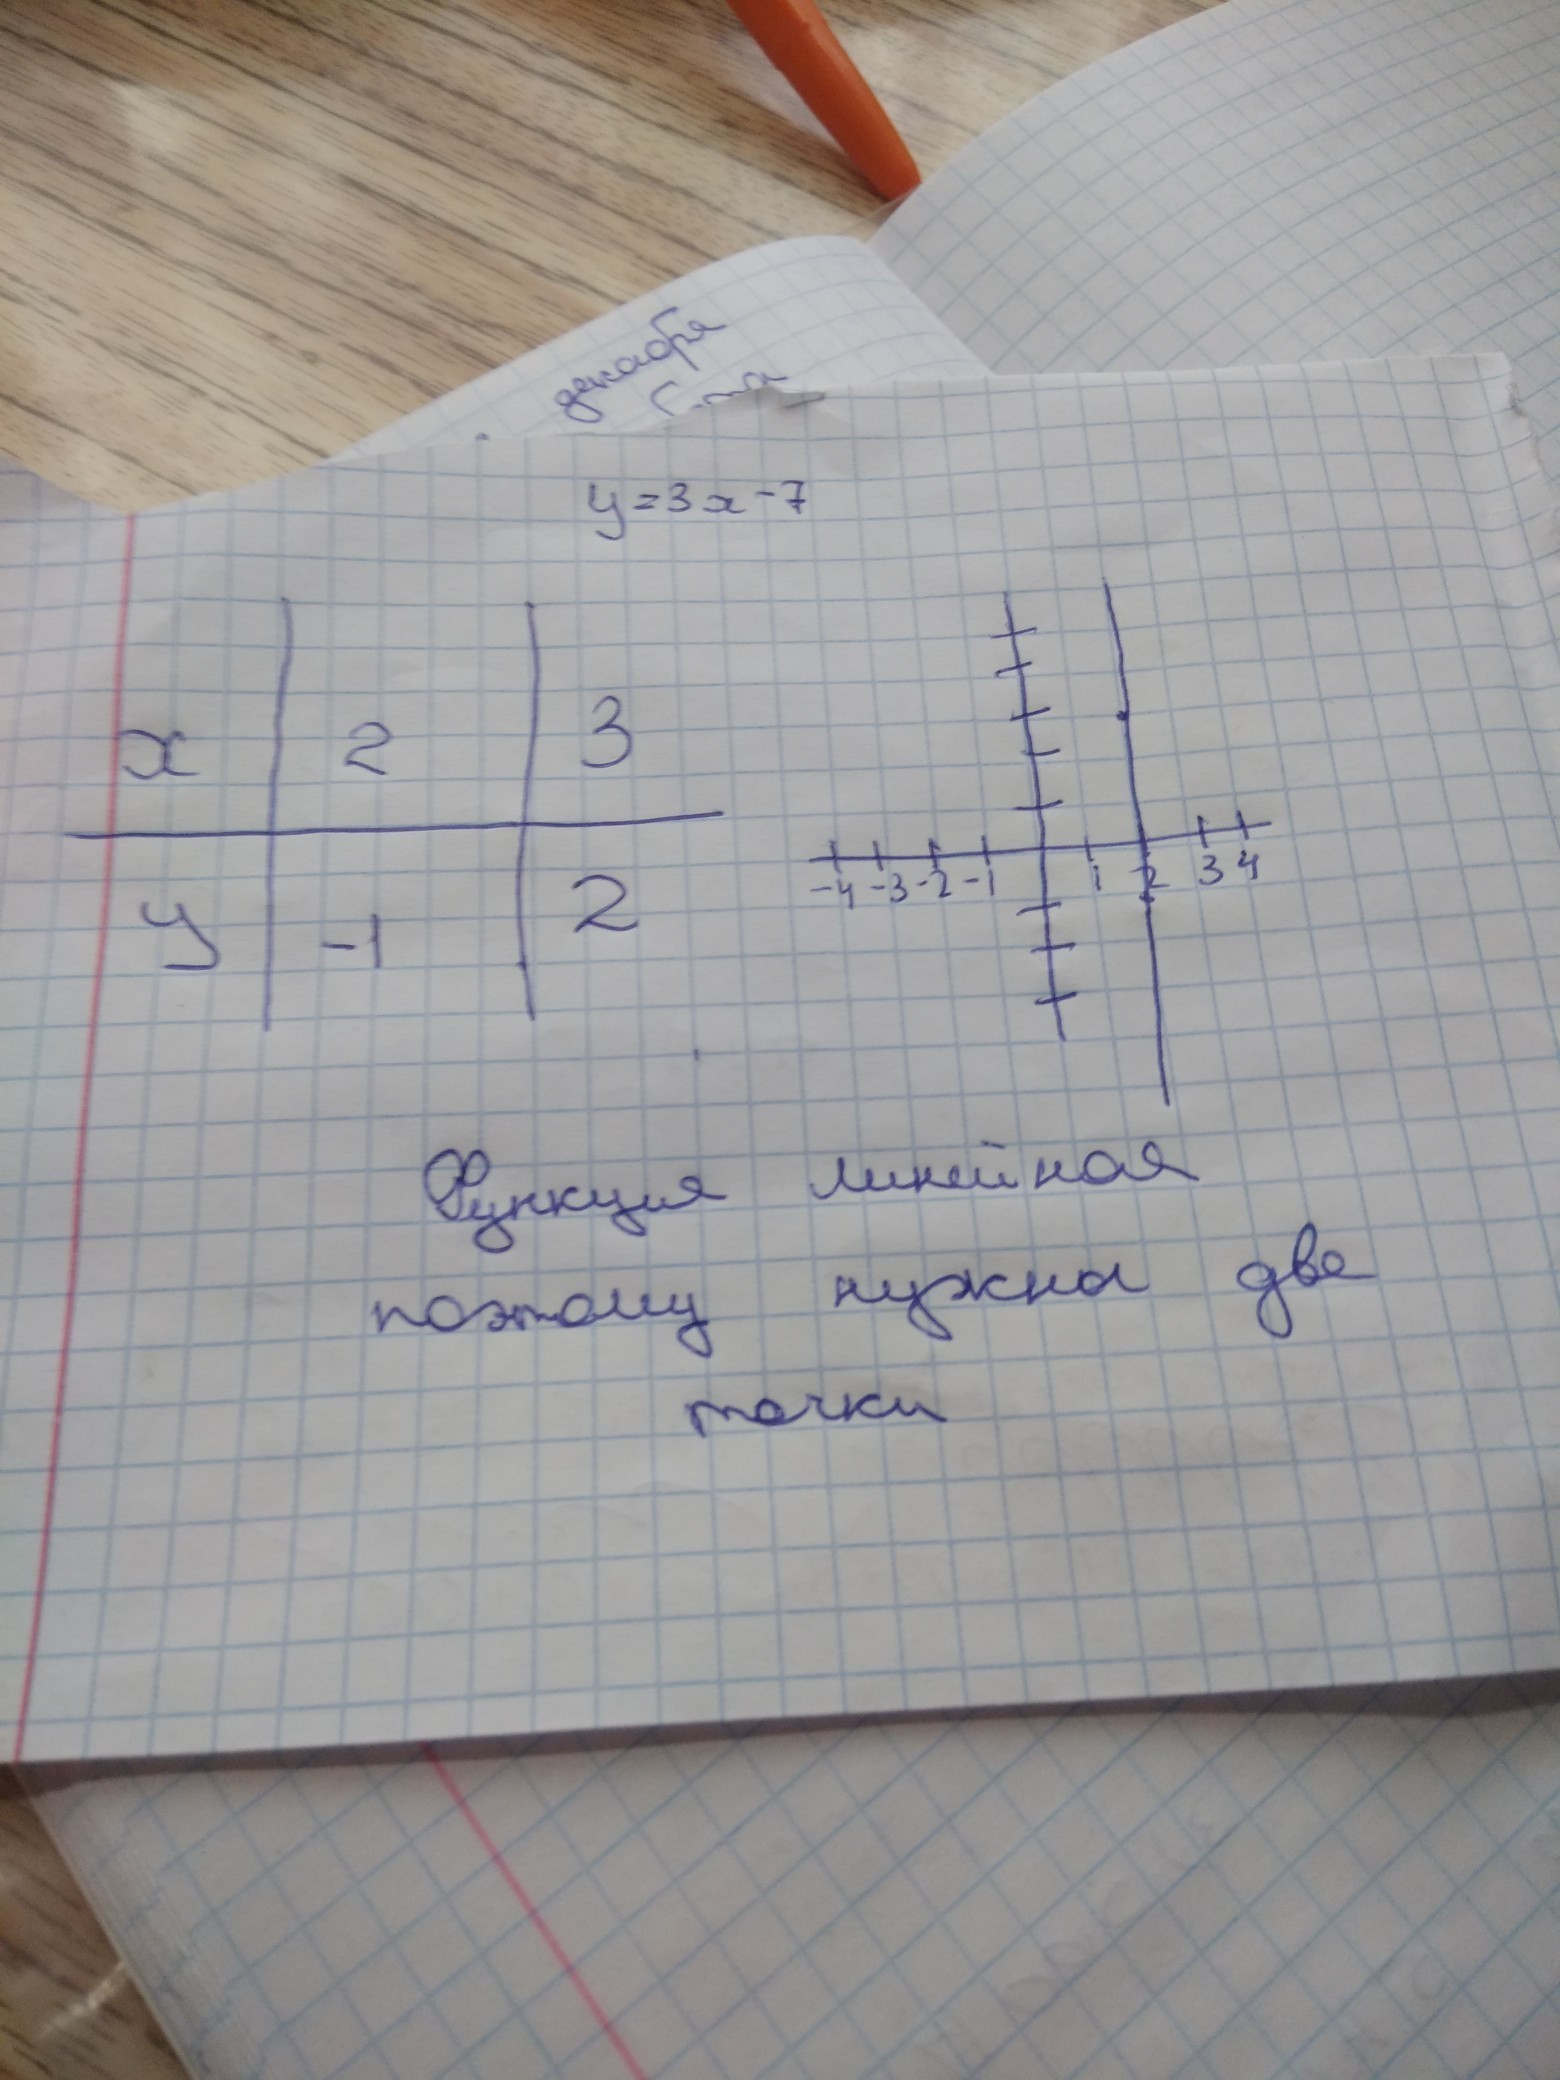 декабря
y=3x-7
x 2 3
y -1 2
-4 -3 -2 -1 1 2 3 4
Функция линейная
поэтому нужна две
точки